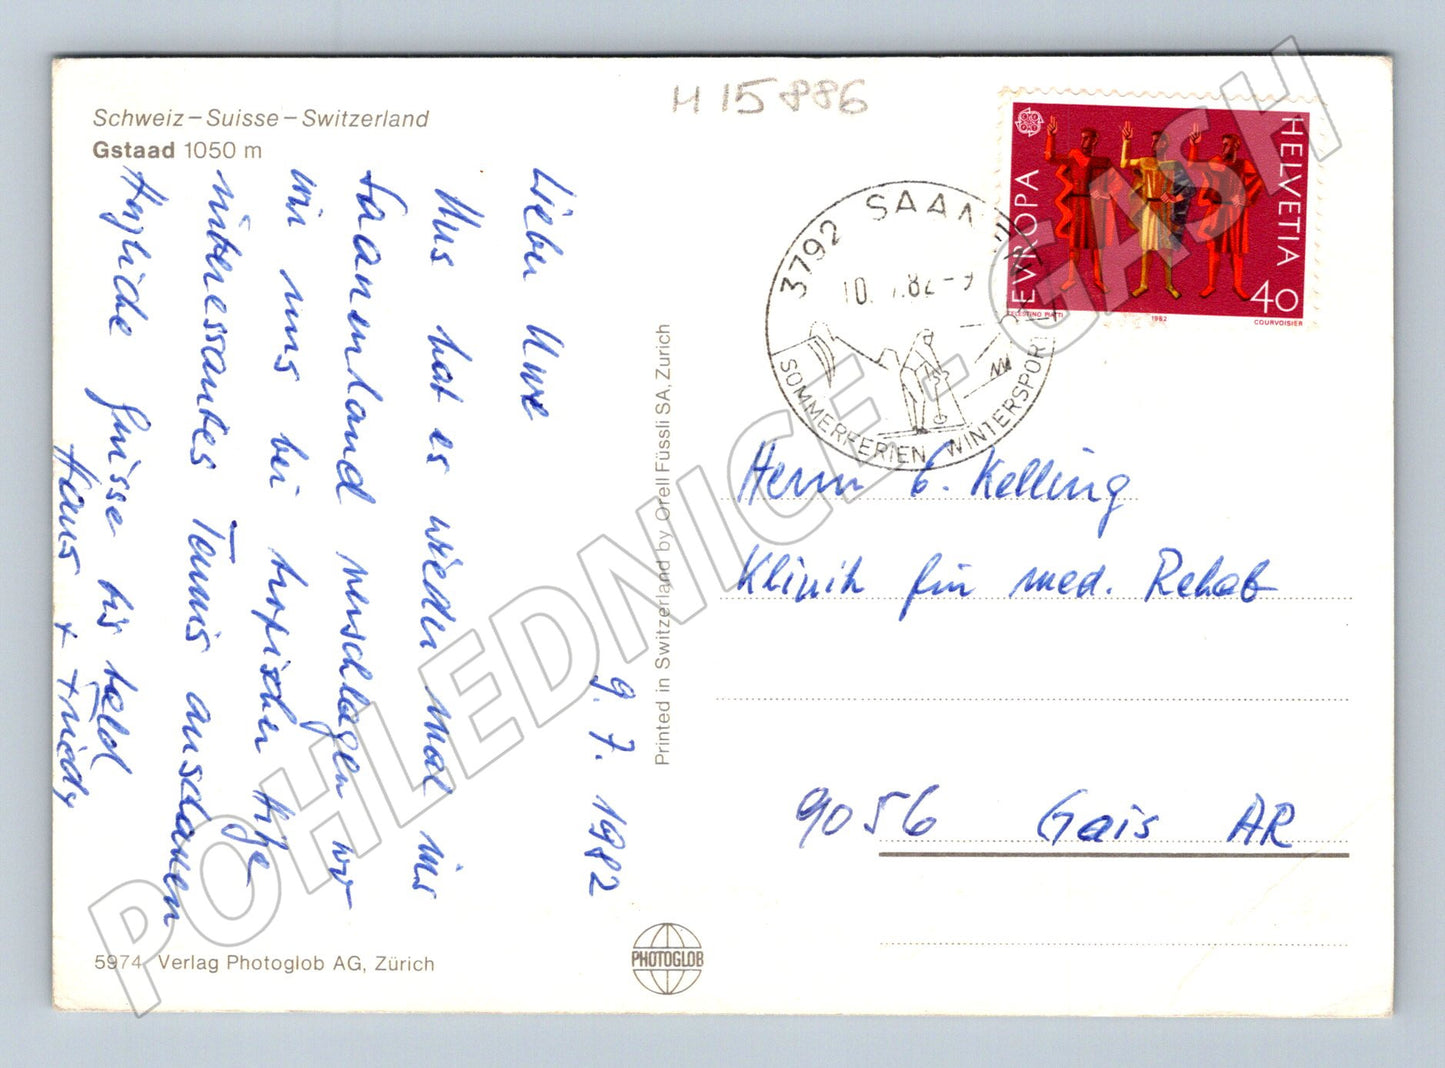 Schweiz – Suisse – Switzerland
Gstaad 1050 m
H15886
Lieber Uwe
Uns hat es wieder mal ins
Saanenland verschlagen wo
wir uns bei tropischer Hitze
interessantes Tennis anschauen
Herzliche Grüsse bis bald
Hans + Friedy
9.7.1982
5974 Verlag Photoglob AG, Zürich
Printed in Switzerland by Orell Füssli SA, Zurich
PHOTOGLOB
EUROPA
HELVETIA
40
CELESTINO PIATTI
1982
COURVOISIER
3792 SAANEN
82-9
SOMMERFERIEN WINTERSPORT
Herrn G. Kelling
Klinik für med. Rehab
9056 Gais AR
POHLEDNICE - GASH